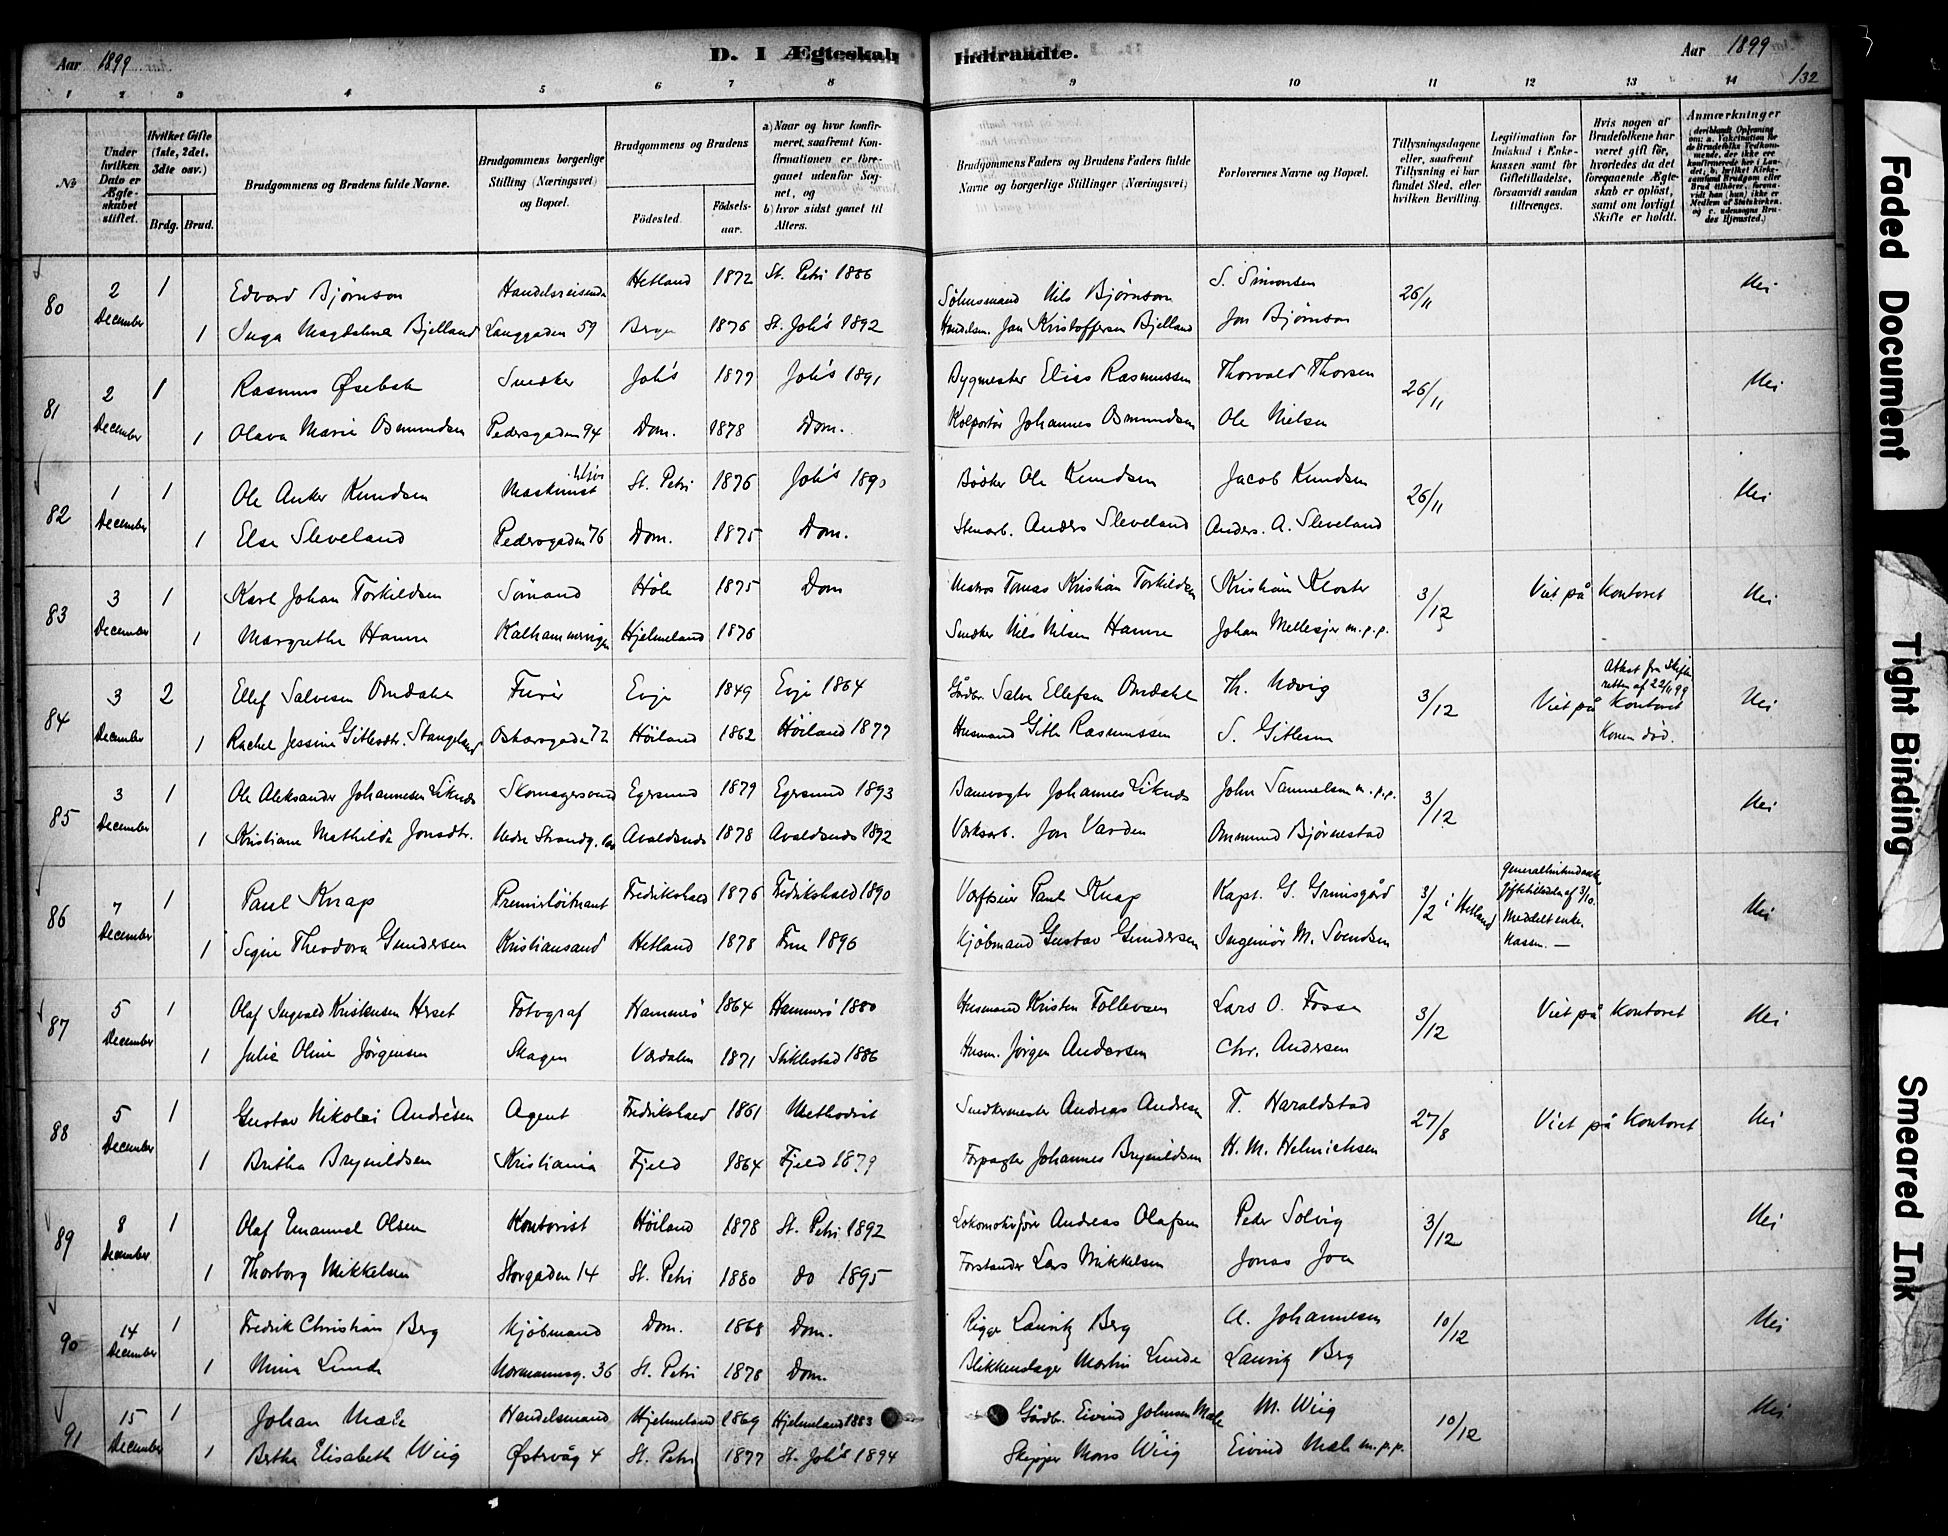 Aar 1899
D. I Ægteskab Indtraadte.
Aar 1899
132
1 2 3 4 5 6 7 8 9 10 11 12 13 14
No
Under hvilken Dato er Ægteskabet stiftet.
Hvilket Gifte (1ste, 2det, 3die osv.)
Brdg. Brud.
Brudgommens og Brudens fulde Navne.
Brudgommens borgerlige Stilling (Næringsvei) og Bopæl.
Brudgommens og Brudens
Fødested.
Fødselsaar.
a) Naar og hvor konfirmeret, saafremt Konfirmationen er foregaaet udenfor Sognet, og
b) hvor sidst gaaet til Alters.
Brudgommens Faders og Brudens Faders fulde Navne og borgerlige Stillinger (Næringsvei)
Forlovernes Navne og Bopæl.
Tillysningsdagene eller, saafremt Tillysning ei har fundet Sted, efter hvilken Bevilling.
Legitimation for Indskud i Enkekassen samt for Giftetilladelse, forsaavidt saadan tiltrænges.
Hvis nogen af Brudefolkene har været gift før, hvorledes da det foregaaende Ægteskab er opløst, samt om lovligt Skifte er holdt.
Anmærkninger
(deriblandt Oplysning om: a. Vakcination for de Brudefolks Vedkommende, der ikke ere konfirmerede her i Landet; b. hvilket Kirkesamfund Brudgom eller Brud tilhører, forsaavidt han (hun) ikke er Medlem af Statskirken, og c. udensogns Brudes Hjemsted.)
80 2 December 1 Edvard Bjørnson Handelsreisende Hetland 1872 St. Petri 1886 Nils Bjørnson S. Simonsen 26/11 Nei
1 Inga Magdalena Bjelland Langgaden 59 Bergen 1876 St. Joh's 1892 Handelsm. Jan Kristoffersen Bjelland Jon Bjørnson
81 2 December 1 Rasmus Øsebak Snedker Joh's 1877 Joh's 1891 Bygmester Elias Rasmussen Thorvald Thorsen 26/11 Nei
1 Olava Marie Osmundsen Pedersgaden 94 Dom. 1878 Dom. Kolportør Johannes Osmundsen Ole Nielsen
82 1 December 1 Ole Anker Knudsen Maskinist St. Petri 1876 Joh's 1890 Bødker Ole Knudsen Jacob Knudsen 26/11 Nei
1 Else Sleveland Pedersgaden 76 Dom. 1875 Dom. Stenarb. Anders Sleveland Anders. A. Sleveland
83 3 December 1 Karl Johan Torkildsen Sømand Høle 1875 Dom Matros Tomas Kristian Torkildsen Kristian Kloster 3/12 Viet på Kontoret Nei
1 Margrethe Hamre Kalhammervigen Hjelmeland 1876 Snedker Nils Nilsen Hamre Johan Mellesjer m.p.p.
84 3 December 2 Ellef Salvesen Omdahl Furér Evje 1849 Evje 1864 Gårdbr. Salve Ellefsen Omdahl Th. Nævig 3/12 Viet på Kontoret Attest fra Skifteretten af 22/11 99 Konen død. Nei
1 Rachel Jessine Gitlesdtr. Stangeland Oskarsgade 72 Høiland 1862 Høiland 1877 Husmand Gitle Rasmussen S. Gitlesen
85 3 December 1 Ole Aleksander Johannesen Liknes Skomagersvend Egersund 1879 Egersund 1893 Banevogter Johannes Liknes John Samuelsen m.p.p. 3/12 Nei
1 Kristiane Mathilde Jonsdtr. Nedre Strandg. Avaldsnes 1878 Avaldsnes 1892 Værksarb. Jon Varden Ommund Bjørnestad
86 7 December 1 Paul Knap Premierløitnant Fredrikshald 1876 Fredrikshald 1890 Paul Knap Kapt. G. Grimsgård 3/12 i Hetland Generalkrigskommissær Giftetilladelse af 3/10. Meddelt enke Kassen. — Nei
1 Signe Theodora Gundersen Kristiansand Hetland 1878 Frue 1896 Kjøbmand Gustav Gundersen Ingeniør M. Svendsen
87 5 December 1 Olaf Ingvald Kristensen Herset Fotograf Hammerø 1864 Hammerø 1880 Husmand Kristen Tollevsen Lars O. Fosse 3/12 Viet på Kontoret Nei
1 Julie Oline Jörgensen Skagen Værdalen 1871 Stiklestad 1886 Husm. Jörgen Andersen Chr. Andersen
88 5 December 1 Gustav Nikolai Andrésen Agent Fredrikshald 1861 Methodist Snedkermester Andreas Andresen T. Haraldstad 27/8 Viet på Kontoret Nei
1 Britha Brynildsen Kristiania Fjeld 1864 Fjeld 1879 Forpagter Johannes Brynildsen H. M. Helmichsen
89 8 December 1 Olaf Emanuel Olsen Kontorist Høiland 1878 St. Petri 1892 Lokomotivfører Andreas Olafsen Peder Solvig 3/12 Nei
1 Thorborg Mikkelsen Storgaden 14 St. Petri 1880 do 1895 Forstander Lars Mikkelsen Jonas Joa
90 14 December 1 Fredrik Christian Berg Kjøbmand Dom. 1868 Dom. Rigger Lauritz Berg A. Johannesen 10/12 Nei
1 Mina Lunde Normannsg. 36 St. Petri 1878 Dom. Blikkenslager Martin Lunde Lauritz Berg
91 15 December 1 Johan Mæle Handelsmand Hjelmeland 1869 Hjelmeland 1883 Gårdbr. Eivind Johnsen Mæle M. Wiig 10/12 Nei
1 Berthe Elisabeth Wiig Østervåg 4 St. Petri 1877 St. Joh's 1894 Skipper Mons Wiig Eivind Mæle m.p.p.
Faded Document
Tight Binding
Smeared Ink